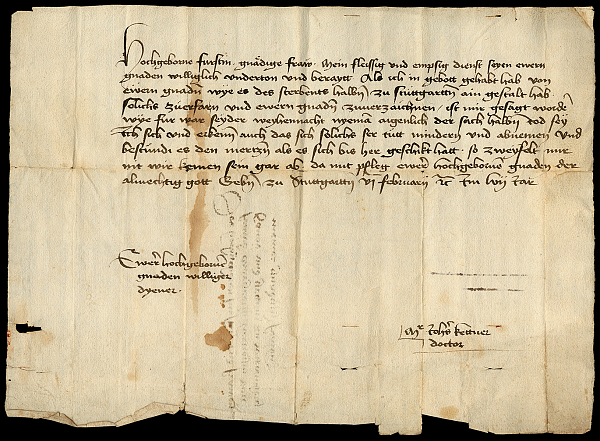 Hochgeborne furstin gnädige fraw. Mein fleissig und empsig dienst seyen ewern
gnaden williglich underton und beraytt Als ich in gebott gehabt hab von
ewern gnadñ wye es des sterbents halbñ zu Stuttgarttñ ain gestalt hab
solichs zuerfarn und ewern gnadñ zuuerzaichnen / ist mir gesagt wordē
wye fur war seyder weyhennacht nyemā augenlich der sach halbñ tod sey
sich und auch das sich solichs ser tutt mindern und abnemen und
bestundi es den mertzñ als es sich bis her geschikt hatt. so zweyfelt mir
nit wir komen sein gar ab da mit pfleg ewer hochgebornē gnaden der
almechtig gott Gebñ zu Stuttgarttñ vi februarii im lvii iar
Ewer hochgebornē
gnaden williger
dyener.
Mr Johs kettner
doctor